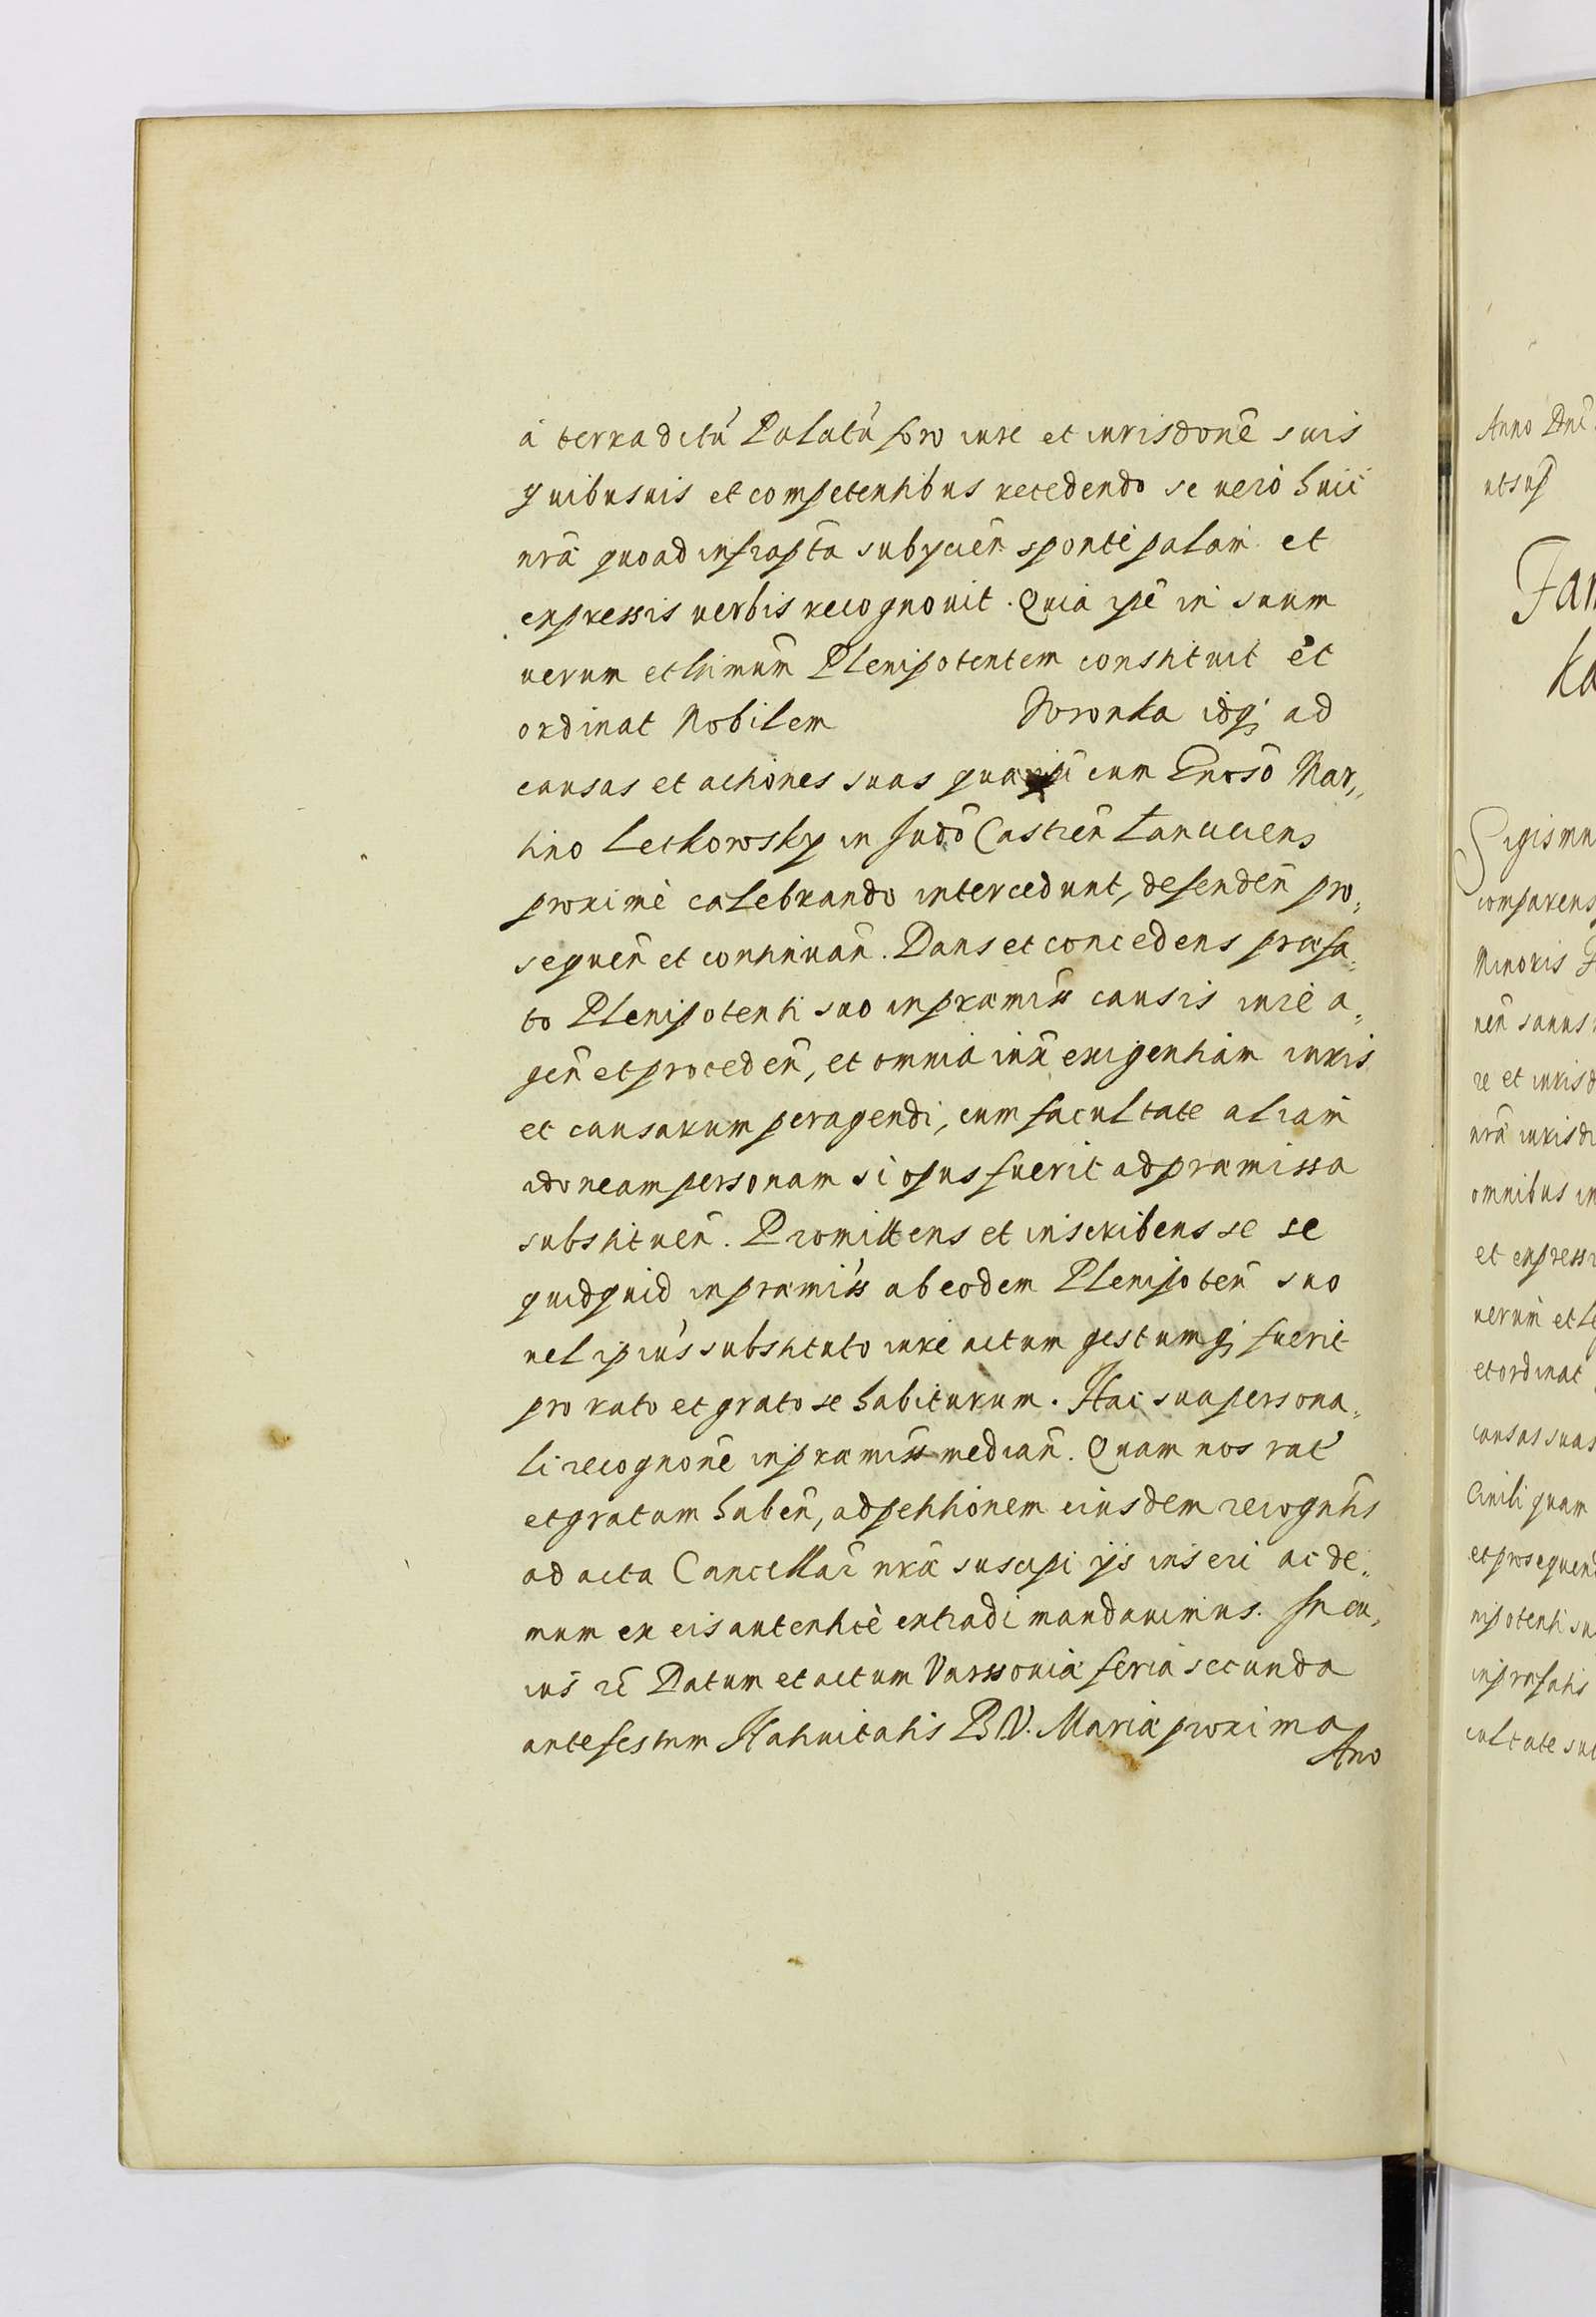 à terra dictũ Palatũ foro iure et iurisdone suis
quibusuis et competentibus recedendo se uerò huic
nrã quoad infrapta subycieñ sponte palam et
expressis uerbis recognouit. Quia ipe in suum
uerum et ltimum Plenipotentem constituit et
ordinat Nobilem Woronka idq; ad
causas et actiones suas quas cum Gnoso Mar,,
tino Leskowsky in Judo Castren Lanciciens
proximè calebrando intercedunt, defendeñ pro,
sequeñ et continuañ. Dans et concedens præfa,
to Plenipotenti suo in præmiss causis iure a,
geñ et procedeñ, et omnia iux exigentiam iuris
et causarum peragendi, cum facultate aliam
idoneam personam si opus fuerit ad præmissa
substitueñ. Promittens et inscribens se se
quidquid in præmiss ab eodem Plenipoteñ suo
uel ipius substituto iure actum gestumq; fuerit
pro rato et grato se habiturum. Hac sua persona,
li recognone in præmiss mediañ. Quam nos rat
et gratam habeñ, ad petitionem eiusdem recogntis
ad acta Cancellar nræ suscipi ijs inseri ac de,
mum ex eis autenticè extradi mandauimus. In cu,
ius rei Datum et actum Varssouiæ feria secunda
ante festum Natiuitatis B.V. Mariæ proxima
Ano
Anno Dni
ut sup
Fam
Ka
Sigismu
comparens
Minoris F
neñ sanus
re et iurisd
nrã iurisdi
omnibus in
et expressi
uerum et le
et ordinat
causas suas
Ciuili quam
et prosequend
nipotenti su
in præfatis
cultate sub